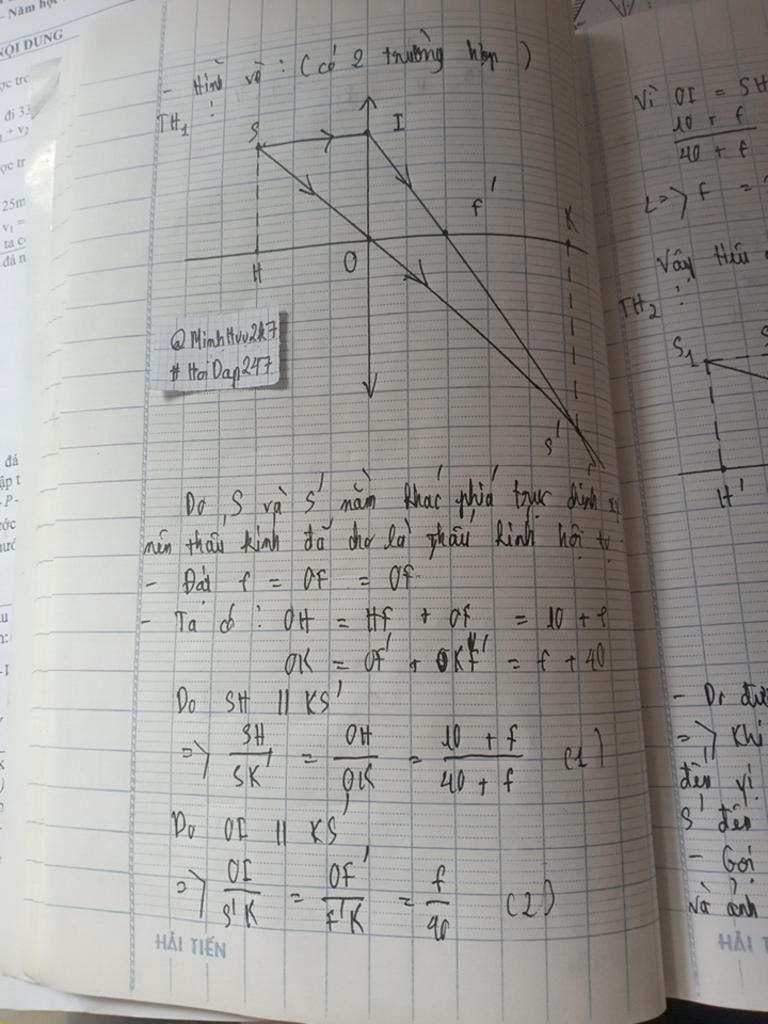 - Năm học
NỘI DUNG
- Hình vẽ : ( có 2 trường hợp )
TH1 :
S
I
F'
K
H
O
S'
@MinhHuu2k7
#HoiDap247
Do S và S' nằm khác phía trục chính xy
nên thấu kính đã cho là thấu kính hội tụ.
- Đặt f = OF = OF'
- Ta có : OH = HF + OF = 10 + f
OK = OF' + KF' = f + 40
Do SH // KS'
=> SH / S'K = OH / OK = 10 + f / 40 + f (1)
Do OI // KS'
=> OI / S'K = OF' / F'K = f / 40 (2)
HẢI TIẾN
Vì OI = SH
10 + f / 40 + f
<=> f =
Vậy tiêu
TH2 :
S1
H'
- Do
=> Khi
đến vị
S' đến
- Gọi
và ảnh
HẢI T